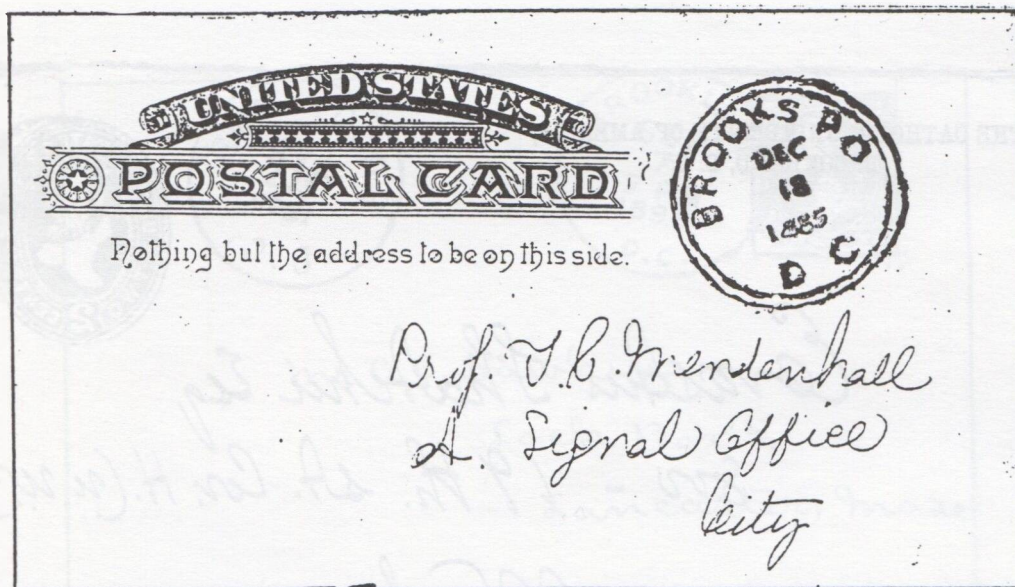 UNITED STATES
POSTAL CARD
Nothing but the address to be on this side.
BROOKS P O
DEC
18
1885
D C
Prof. T. C. Mendenhall
Signal Office
City